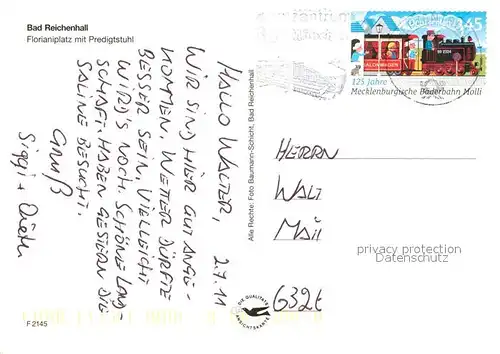 Bad Reichenhall
Florianiplatz mit Predigtstuhl
HALLO WALTER,
2.7.11
WIR SIND HIER GUT ANGE-
KOMMEN. WETTER DÜRFTE
BESSER SEIN. VIELLEICHT
WIRD'S NOCH. SCHÖNE LAND-
SCHAFT. HABEN GESTERN DIE
SALINE BESUCHT.
GRUß
Siggi +
F 2145
Alle Rechte: Foto Baumann-Schicht, Bad Reichenhall
DIE QUALITÄTS
ANSICHTSKARTE
45
125 Jahre
Mecklenburgische Bäderbahn Molli
HERRN
WALT
privacy protection
Datenschutz